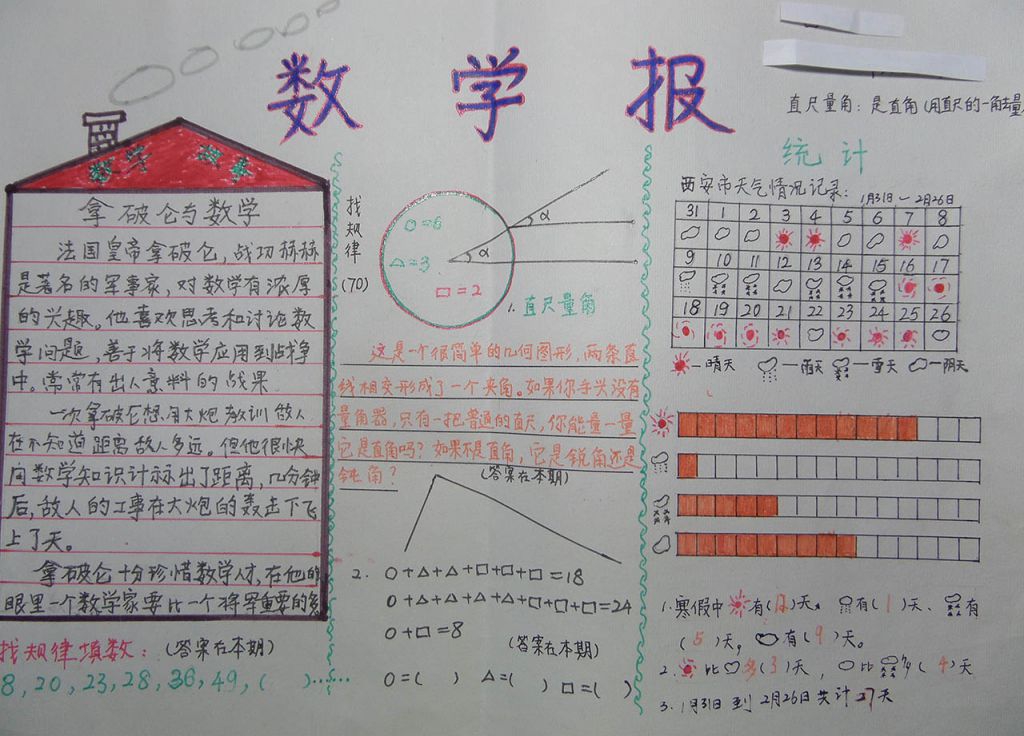 数 学 报
数学 故事
拿破仑与数学
法国皇帝拿破仑，战功赫赫
是著名的军事家，对数学有浓厚
的兴趣。他喜欢思考和讨论数
学问题，善于将数学应用到战争
中。常常有出人意料的战果
一次拿破仑想用大炮教训敌人
在不知道距离敌人多远。但他很快
向数学知识计算出了距离，几分钟
后，敌人的工事在大炮的轰击下飞
上了天。
拿破仑十分珍惜数学人才，在他的
眼里一个数学家要比一个将军重要的多
找规律填数：(答案在本期)
8，20，23，28，36，49，( )……
找规律
(70)
○=6
△=3
□=2
α
α
1.直尺量角
这是一个很简单的几何图形，两条直
线相交形成了一个夹角。如果你手头没有
量角器，只有一把普通的直尺，你能量一量
它是直角吗？如果不是直角，它是锐角还是
钝角？
(答案在本期)
2. ○+△+△+□+□+□=18
○+△+△+△+△+□+□+□=24
○+□=8
(答案在本期)
○=( ) △=( ) □=( )
直尺量角：是直角(用直尺的一角去量
统 计
西安市天气情况记录：1月31日—2月26日
31 1 2 3 4 5 6 7 8
9 10 11 12 13 14 15 16 17
18 19 20 21 22 23 24 25 26
—晴天 —雨天 —雪天 —阴天
1.寒假中 有(12)天， 有(1)天、 有
(5)天， 有(9)天。
2. 比 多(3)天， 比 多(4)天
3.1月31日到2月26日共计27天